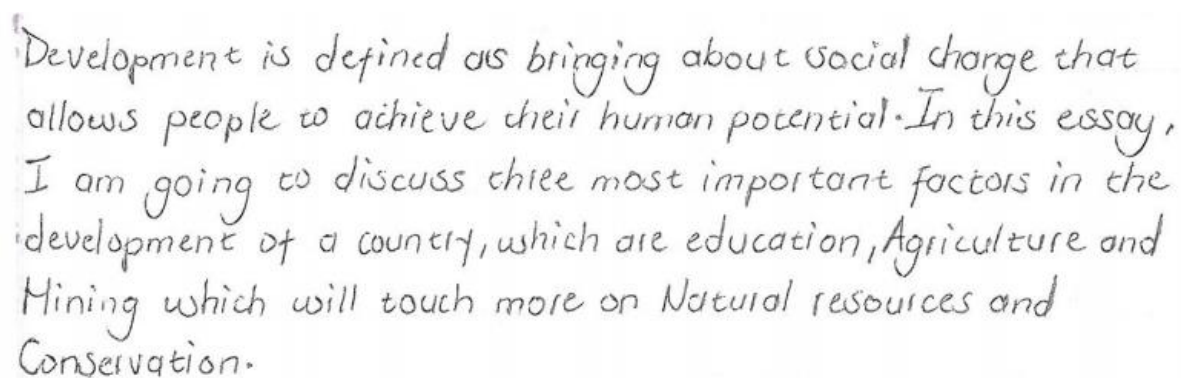 Development is defined as bringing about social change that
allows people to achieve their human potential. In this essay,
I am going to discuss three most important factors in the
development of a country, which are education, Agriculture and
Mining which will touch more on Natural resources and
Conservation.